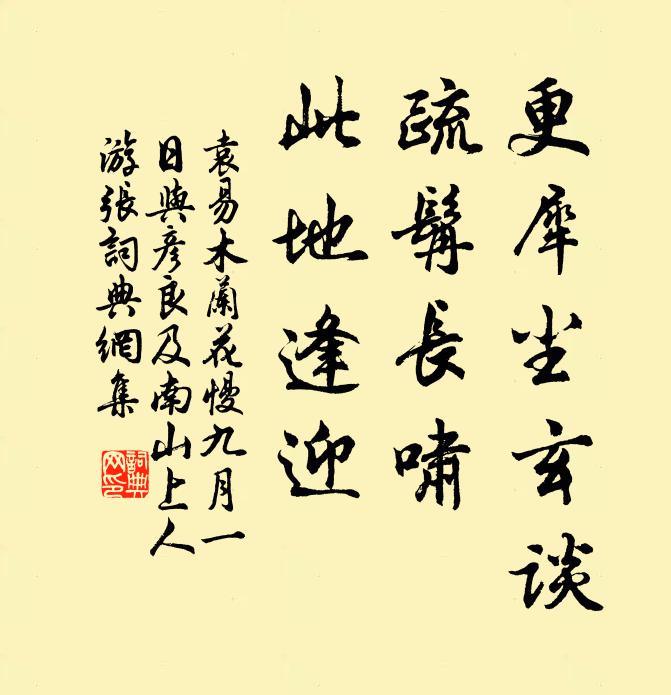 更犀尘玄谈
疏髯长啸
此地逢迎
袁易木蘭花慢九月一
日與彦良及南山上人
游張詞典網集
詞典
网印